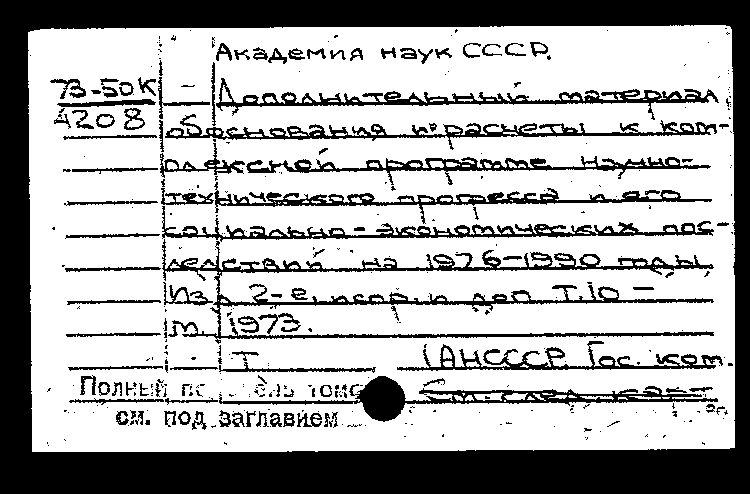 Академия наук СССР.
73-50К - Дополнительный материал,
4208 обоснования и расчеты к ком-
плексной программе научно-
технического прогресса и его
социально-экономических пос-
ледствий на 1976-1990 годы
Изд 2-е, испр. и доп Т.10 -
м. 1973.
Т (АН СССР. Гос. ком.
Полный томо
См. след. карт
см. под заглавием